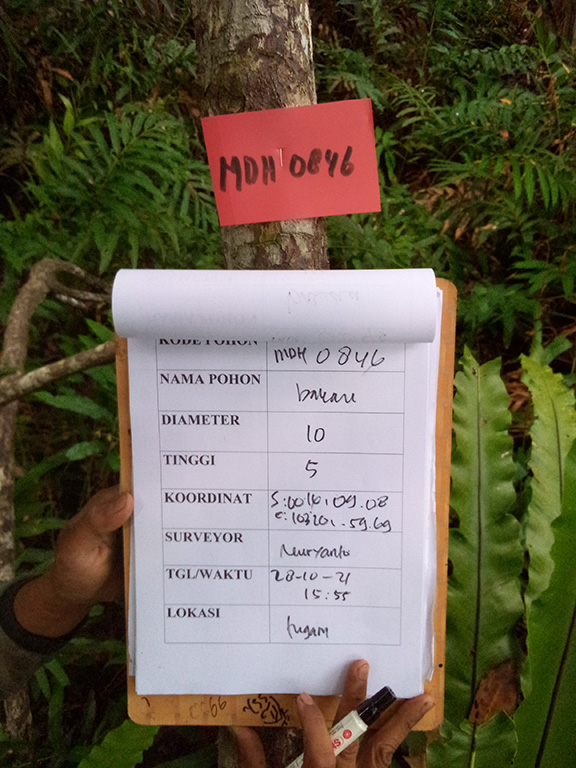 MDH 0846
KODE POHON MDH 0846
NAMA POHON bakau
DIAMETER 10
TINGGI 5
KOORDINAT
SURVEYOR Nuryanto
TGL/WAKTU 28-10-21
15:55
LOKASI